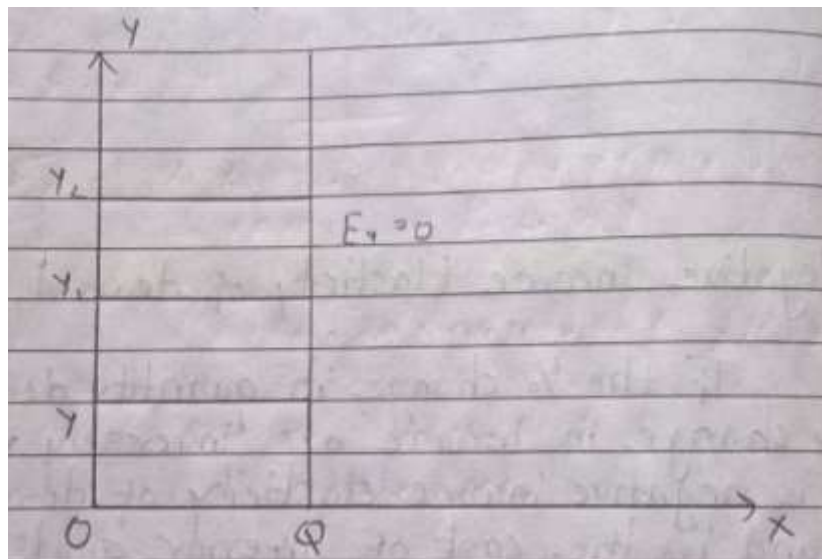 Y
Y₂
Eᵧ = 0
Y₁
Y
O Q X